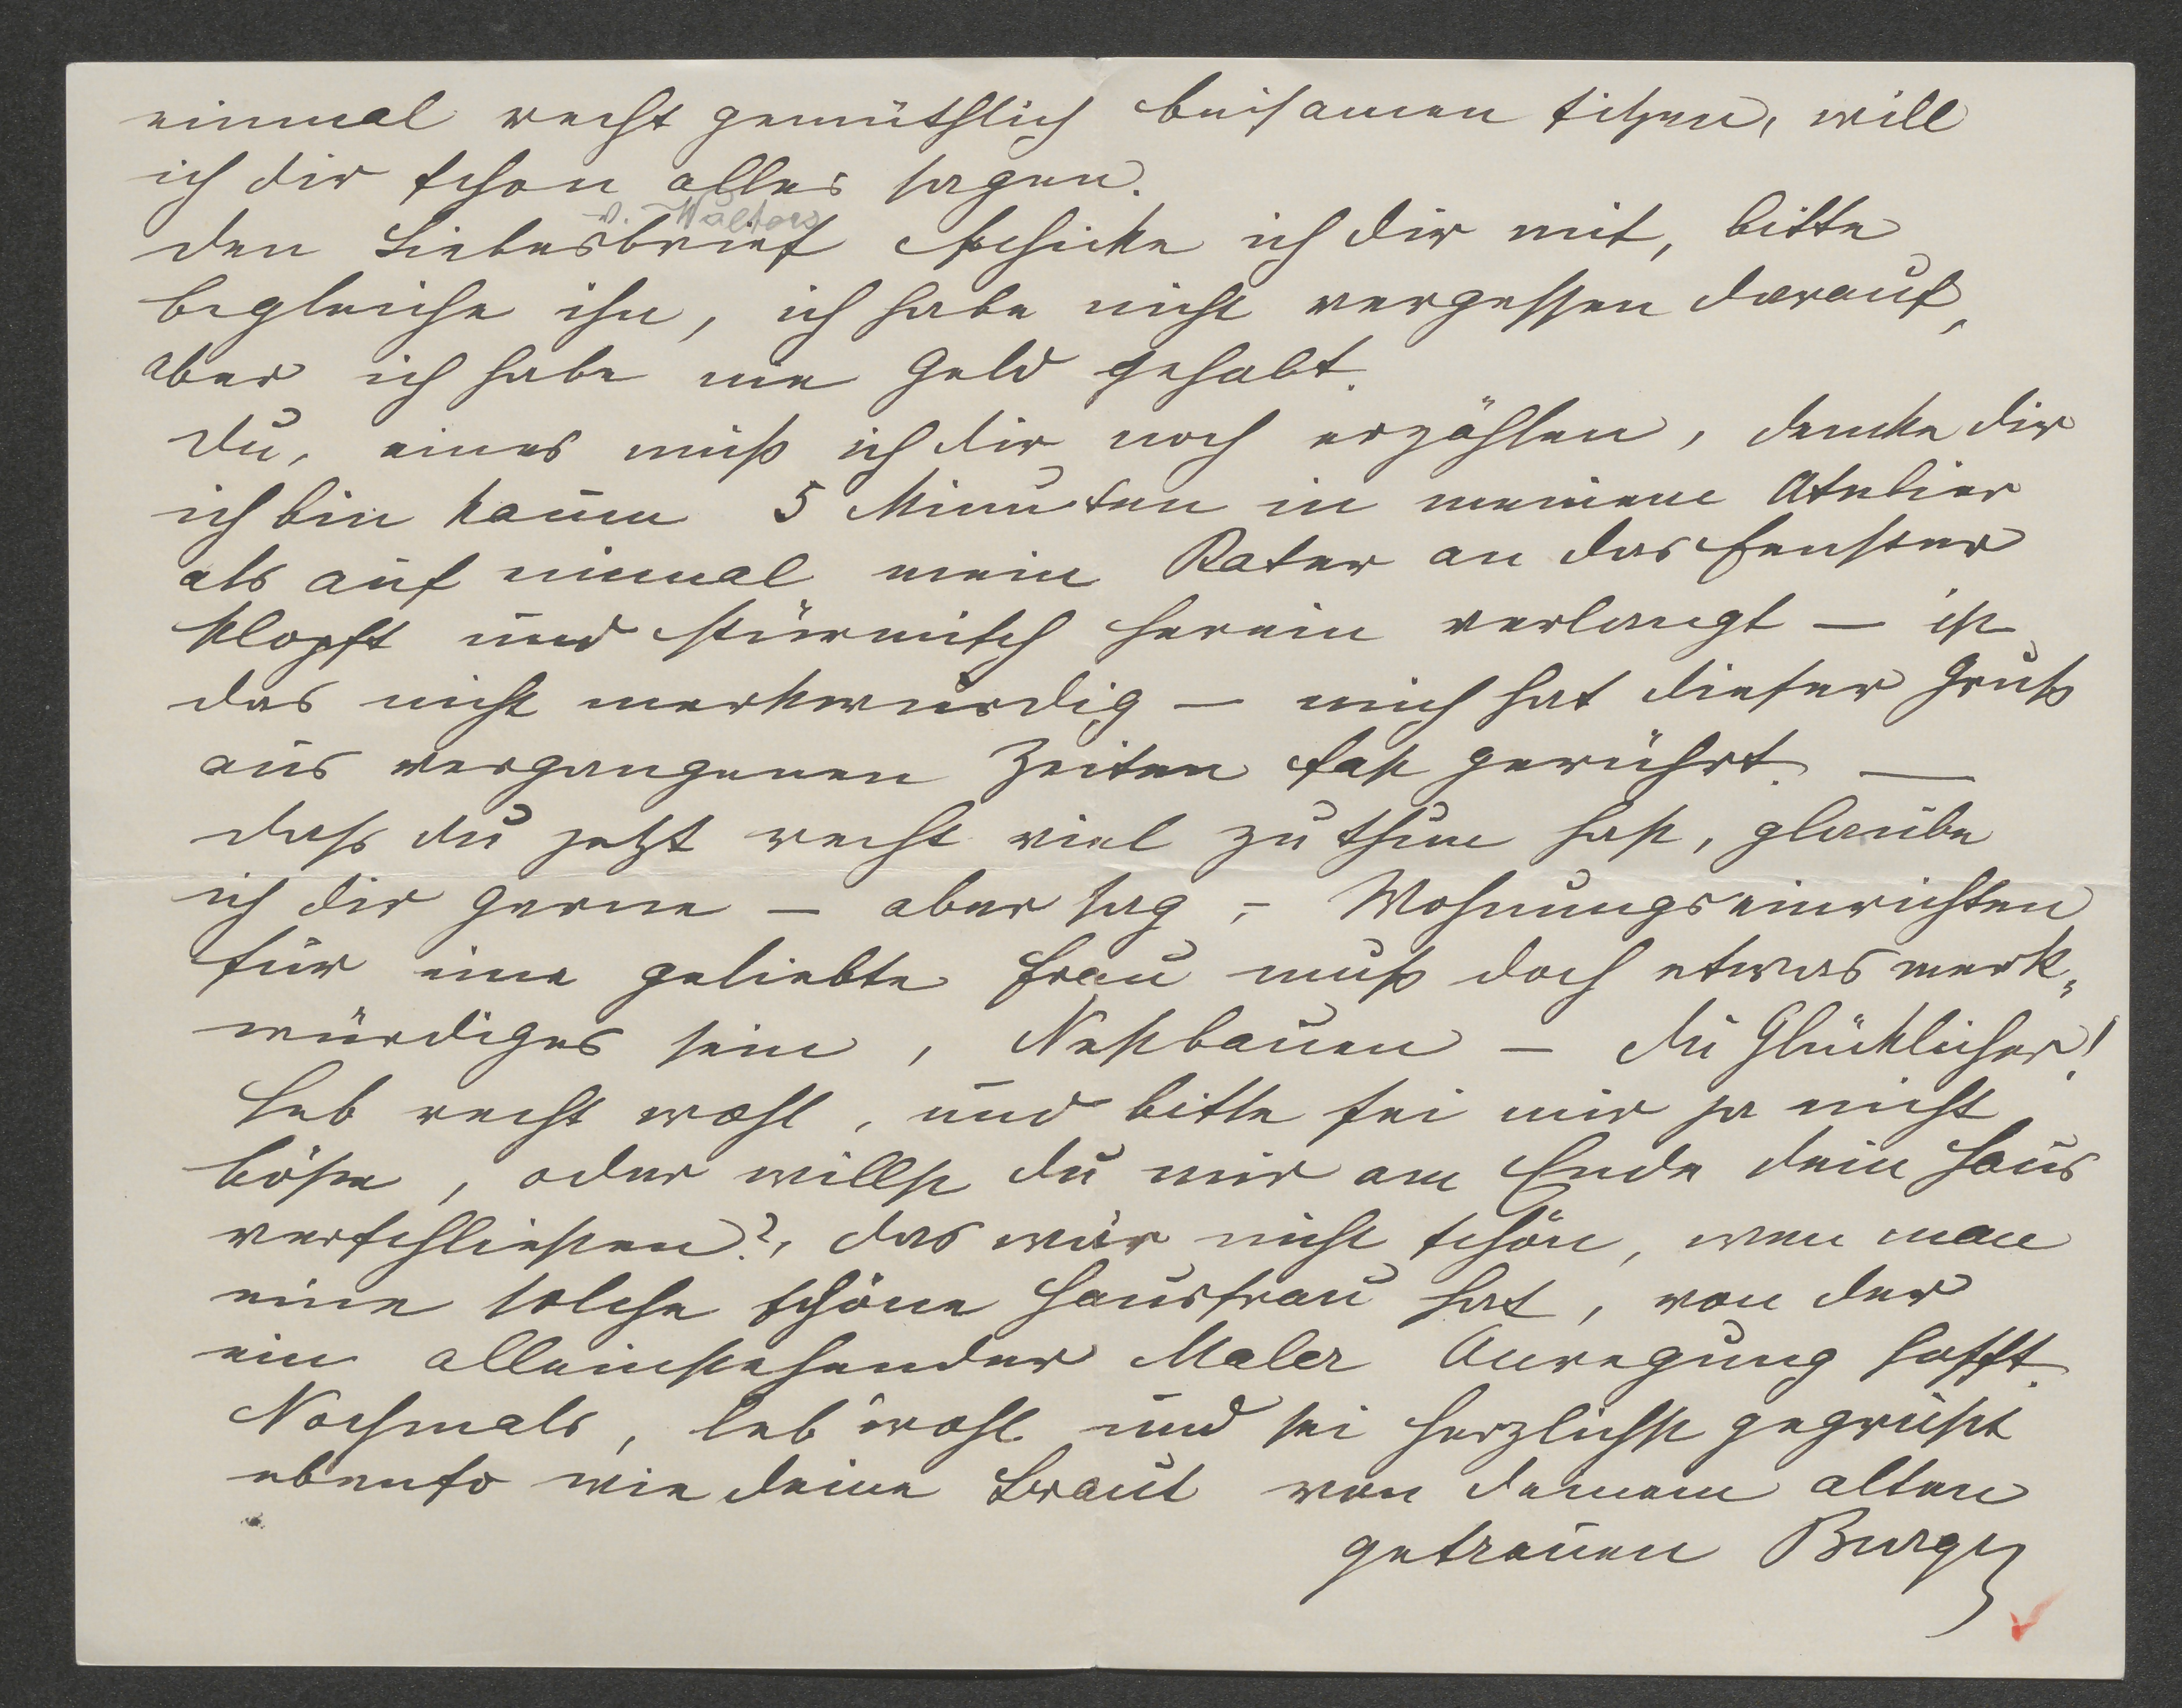 einmal recht gemüthlich beisamen sitzen, will
ich dir schon alles sagen.
v. Walters
den Liebesbrief schicke ich dir mit, bitte
begleiche ihn, ich habe nicht vergessen darauf,
aber ich habe nie Geld gehabt.
Du, eines muß ich dir noch erzählen, dencke dir
ich bin kaum 5 Minuten in meinem Atelier
als auf einmal mein Kater an das Fenster
klopft und stürmisch herein verlangt — ist
das nicht merkwürdig — mich hat dieser Gruß
aus vergangenen Zeiten fast gerührt. —
dass du jetzt recht viel zu thun hast, glaube
ich dir gerne — aber sag, – Wohnungseinrichten
für eine geliebte Frau muß doch etwas merk„
würdiges sein, Nestbauen — du Glücklicher!
Leb recht wohl, und bitte sei mir ja nicht
böse, oder willst du mir am Ende dein Haus
verschließen?, das wär nicht schön, wen man
eine solche schöne Hausfrau hat, von der
ein alleinstehender Maler Anregung hofft.
Nochmals, leb wohl und sei herzlichst gegrüßt
ebenso wie deine Braut von deinem alten
getreuen Burger